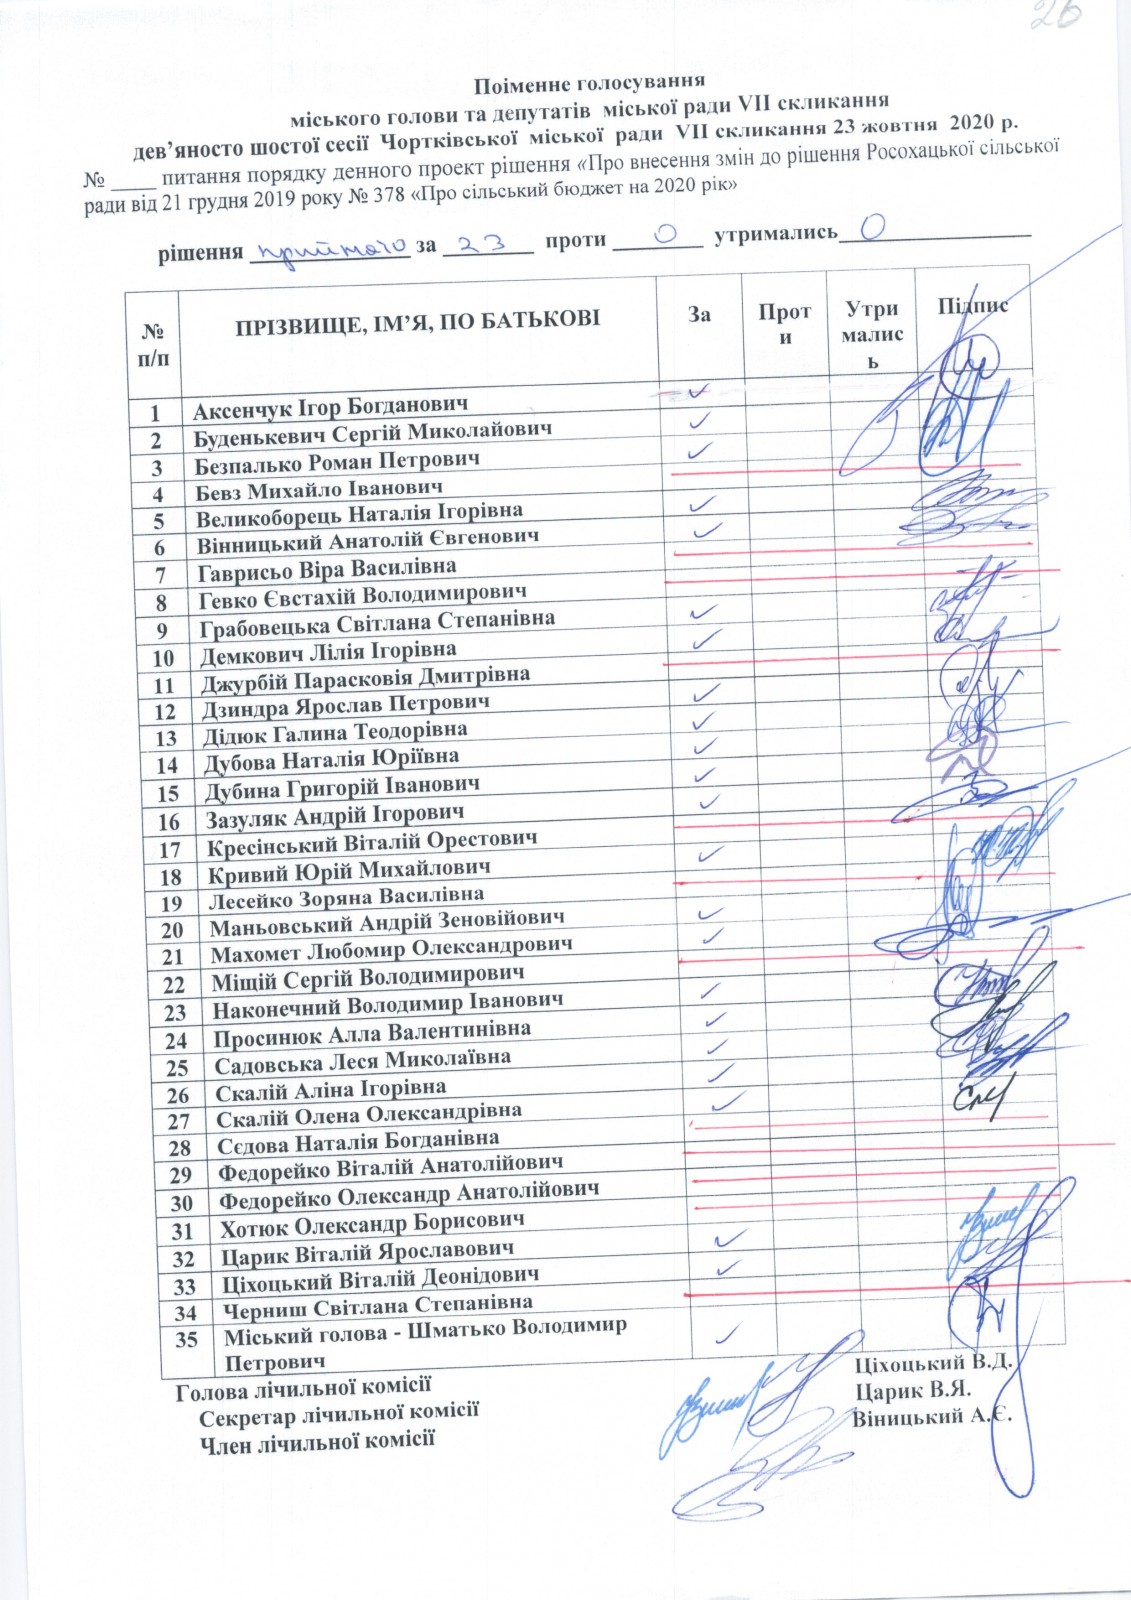 26
Поіменне голосування
міського голови та депутатів міської ради VII скликання
дев’яносто шостої сесії Чортківської міської ради VII скликання 23 жовтня 2020 р.
№ ____ питання порядку денного проект рішення «Про внесення змін до рішення Росохацької сільської
ради від 21 грудня 2019 року № 378 «Про сільський бюджет на 2020 рік»
рішення прийнято за 23 проти 0 утримались 0
№ п/п ПРІЗВИЩЕ, ІМ’Я, ПО БАТЬКОВІ За Проти Утримались Підпис
1 Аксенчук Ігор Богданович ✓
2 Буденькевич Сергій Миколайович ✓
3 Безпалько Роман Петрович ✓
4 Бевз Михайло Іванович
5 Великоборець Наталія Ігорівна ✓
6 Вінницький Анатолій Євгенович ✓
7 Гаврисьо Віра Василівна
8 Гевко Євстахій Володимирович
9 Грабовецька Світлана Степанівна ✓
10 Демкович Лілія Ігорівна ✓
11 Джурбій Парасковія Дмитрівна
12 Дзиндра Ярослав Петрович ✓
13 Дідюк Галина Теодорівна ✓
14 Дубова Наталія Юріївна ✓
15 Дубина Григорій Іванович ✓
16 Зазуляк Андрій Ігорович ✓
17 Кресінський Віталій Орестович
18 Кривий Юрій Михайлович ✓
19 Лесейко Зоряна Василівна
20 Маньовський Андрій Зеновійович ✓
21 Махомет Любомир Олександрович ✓
22 Міщій Сергій Володимирович
23 Наконечний Володимир Іванович ✓
24 Просинюк Алла Валентинівна ✓
25 Садовська Леся Миколаївна ✓
26 Скалій Аліна Ігорівна ✓
27 Скалій Олена Олександрівна ✓
28 Сєдова Наталія Богданівна
29 Федорейко Віталій Анатолійович
30 Федорейко Олександр Анатолійович
31 Хотюк Олександр Борисович
32 Царик Віталій Ярославович ✓
33 Ціхоцький Віталій Деонідович ✓
34 Черниш Світлана Степанівна
35 Міський голова - Шматько Володимир
Петрович ✓
Голова лічильної комісії Ціхоцький В.Д.
Секретар лічильної комісії Царик В.Я.
Член лічильної комісії Віницький А.Є.